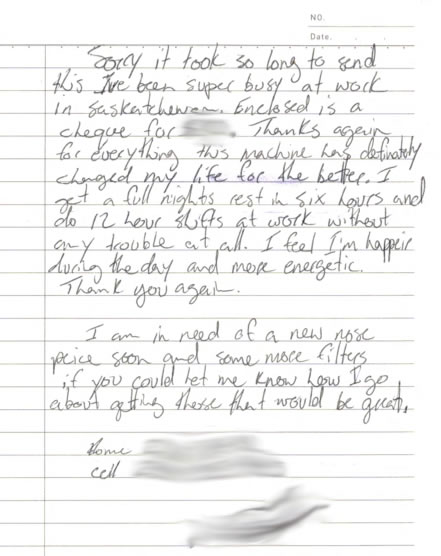 NO.
Date.
Sorry it took so long to send
this I've been super busy at work
in Saskatchewan. Enclosed is a
cheque for . Thanks again
for everything this machine has definately
changed my life for the better. I
get a full nights rest in six hours and
do 12 hour shifts at work without
any trouble at all. I feel I'm happeir
during the day and more energetic.
Thank you again.
I am in need of a new nose
peice soon and some more filters
if you could let me know how I go
about getting these that would be great.
Home
cell